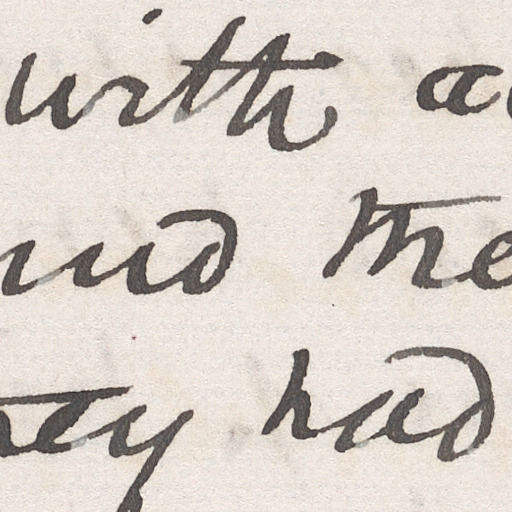 with a
and the
they had